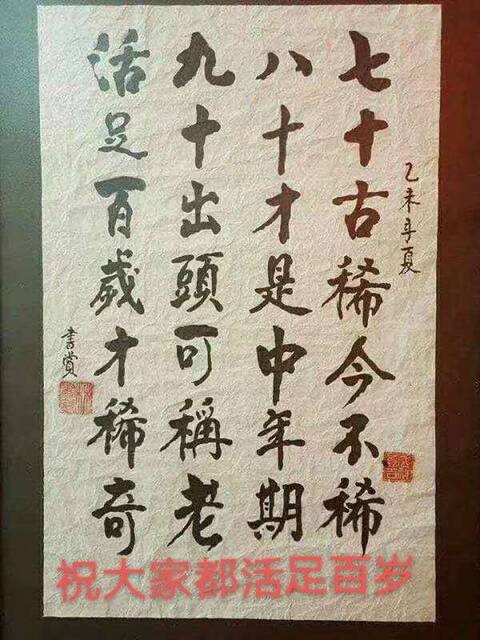 乙未年夏
七十古稀今不稀
八十才是中年期
九十出頭可稱老
活足百歲才稀奇
書賞
祝大家都活足百岁